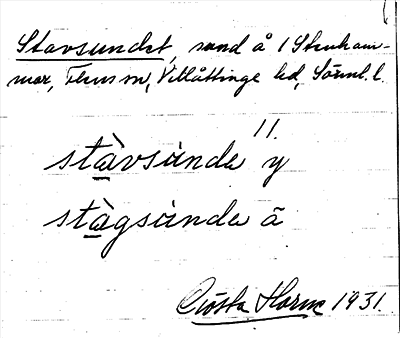 Stavsundet, sund å 1 Stenham-
mar, Flens sn, Villåttinge hd, Sörml. l.
11.
stàvsúndə y
stàgsúndə ä
Gösta Horne 1931.